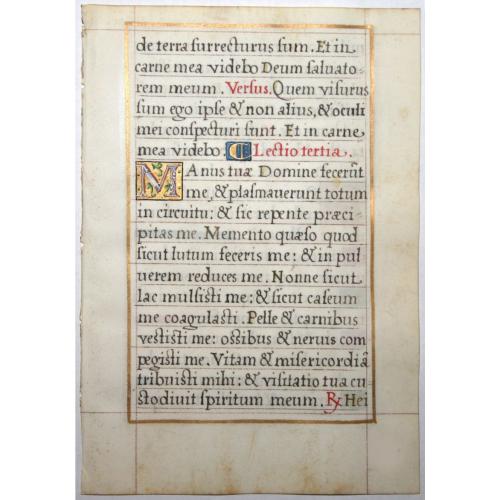 de terra ſurrecturus ſum. Et in
carne mea videbo Deum ſaluato-
rem meum. Versus. Quem viſurus
ſum ego ipſe & non alius, & oculi
mei conſpecturi ſunt. Et in carne
mea videbo. Lectio tertia.
MAnus tuæ Domine fecerūt
me, & plaſmauerunt totum
in circuitu: & ſic repente præci-
pitas me. Memento quæſo quod
ſicut lutum feceris me: & in pul
uerem reduces me. Nonne ſicut
lac mulſiſti me: & ſicut caſeum
me coagulaſti. Pelle & carnibus
veſtiſti me: oſſibus & neruis com
pegiſti me. Vitam & miſericordiā
tribuiſti mihi: & viſitatio tua cu
ſtodiuit ſpiritum meum. ℞ Hei